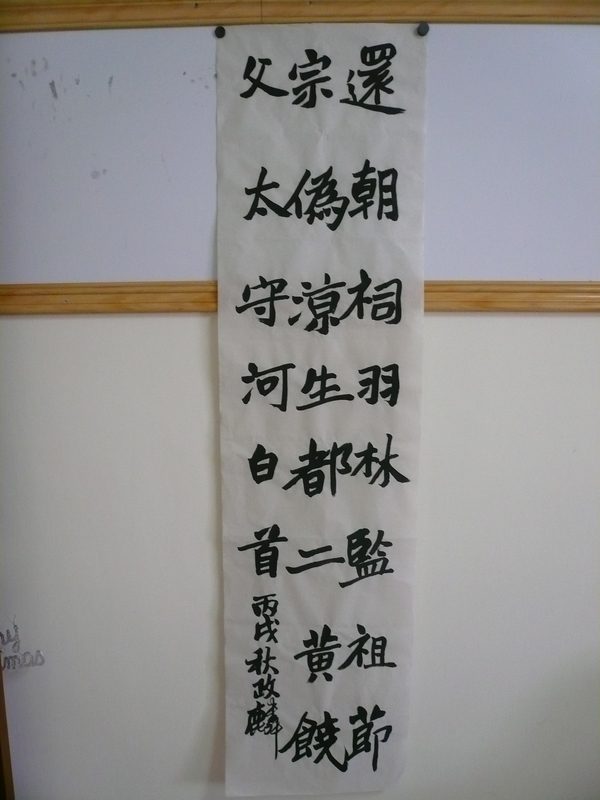 還朝祠羽林監祖莭
宗偽涼生都二黃饒
父太守河白首
丙戌秋政麟
mas